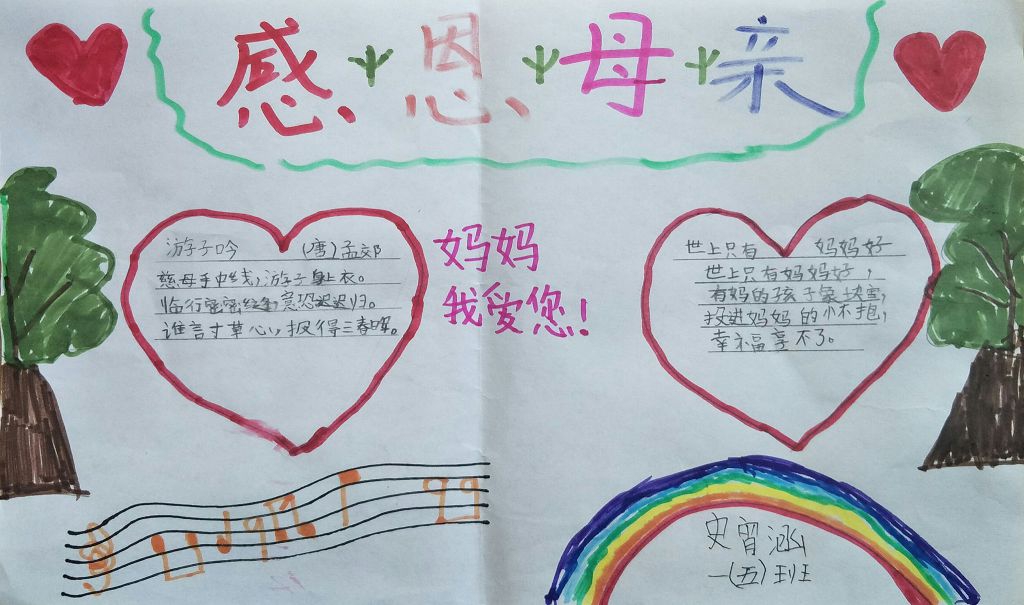 感恩母亲
游子吟 (唐)孟郊
慈母手中线,游子身上衣。
临行密密缝,意恐迟迟归。
谁言寸草心,报得三春晖。
妈妈
我爱您!
世上只有 妈妈好
世上只有妈妈好,
有妈的孩子象块宝,
投进妈妈的怀抱,
幸福享不了。
史宵涵
一(五)班